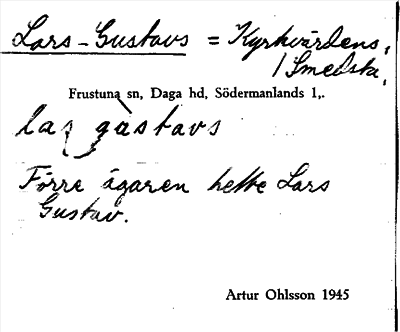 Lars-Gustavs = Kyrkvärdens,
/Smedsta,
Frustuna sn, Daga hd, Södermanlands l,.
la₍ gàstavs
Förre ägaren hette Lars
Gustav.
Artur Ohlsson 1945